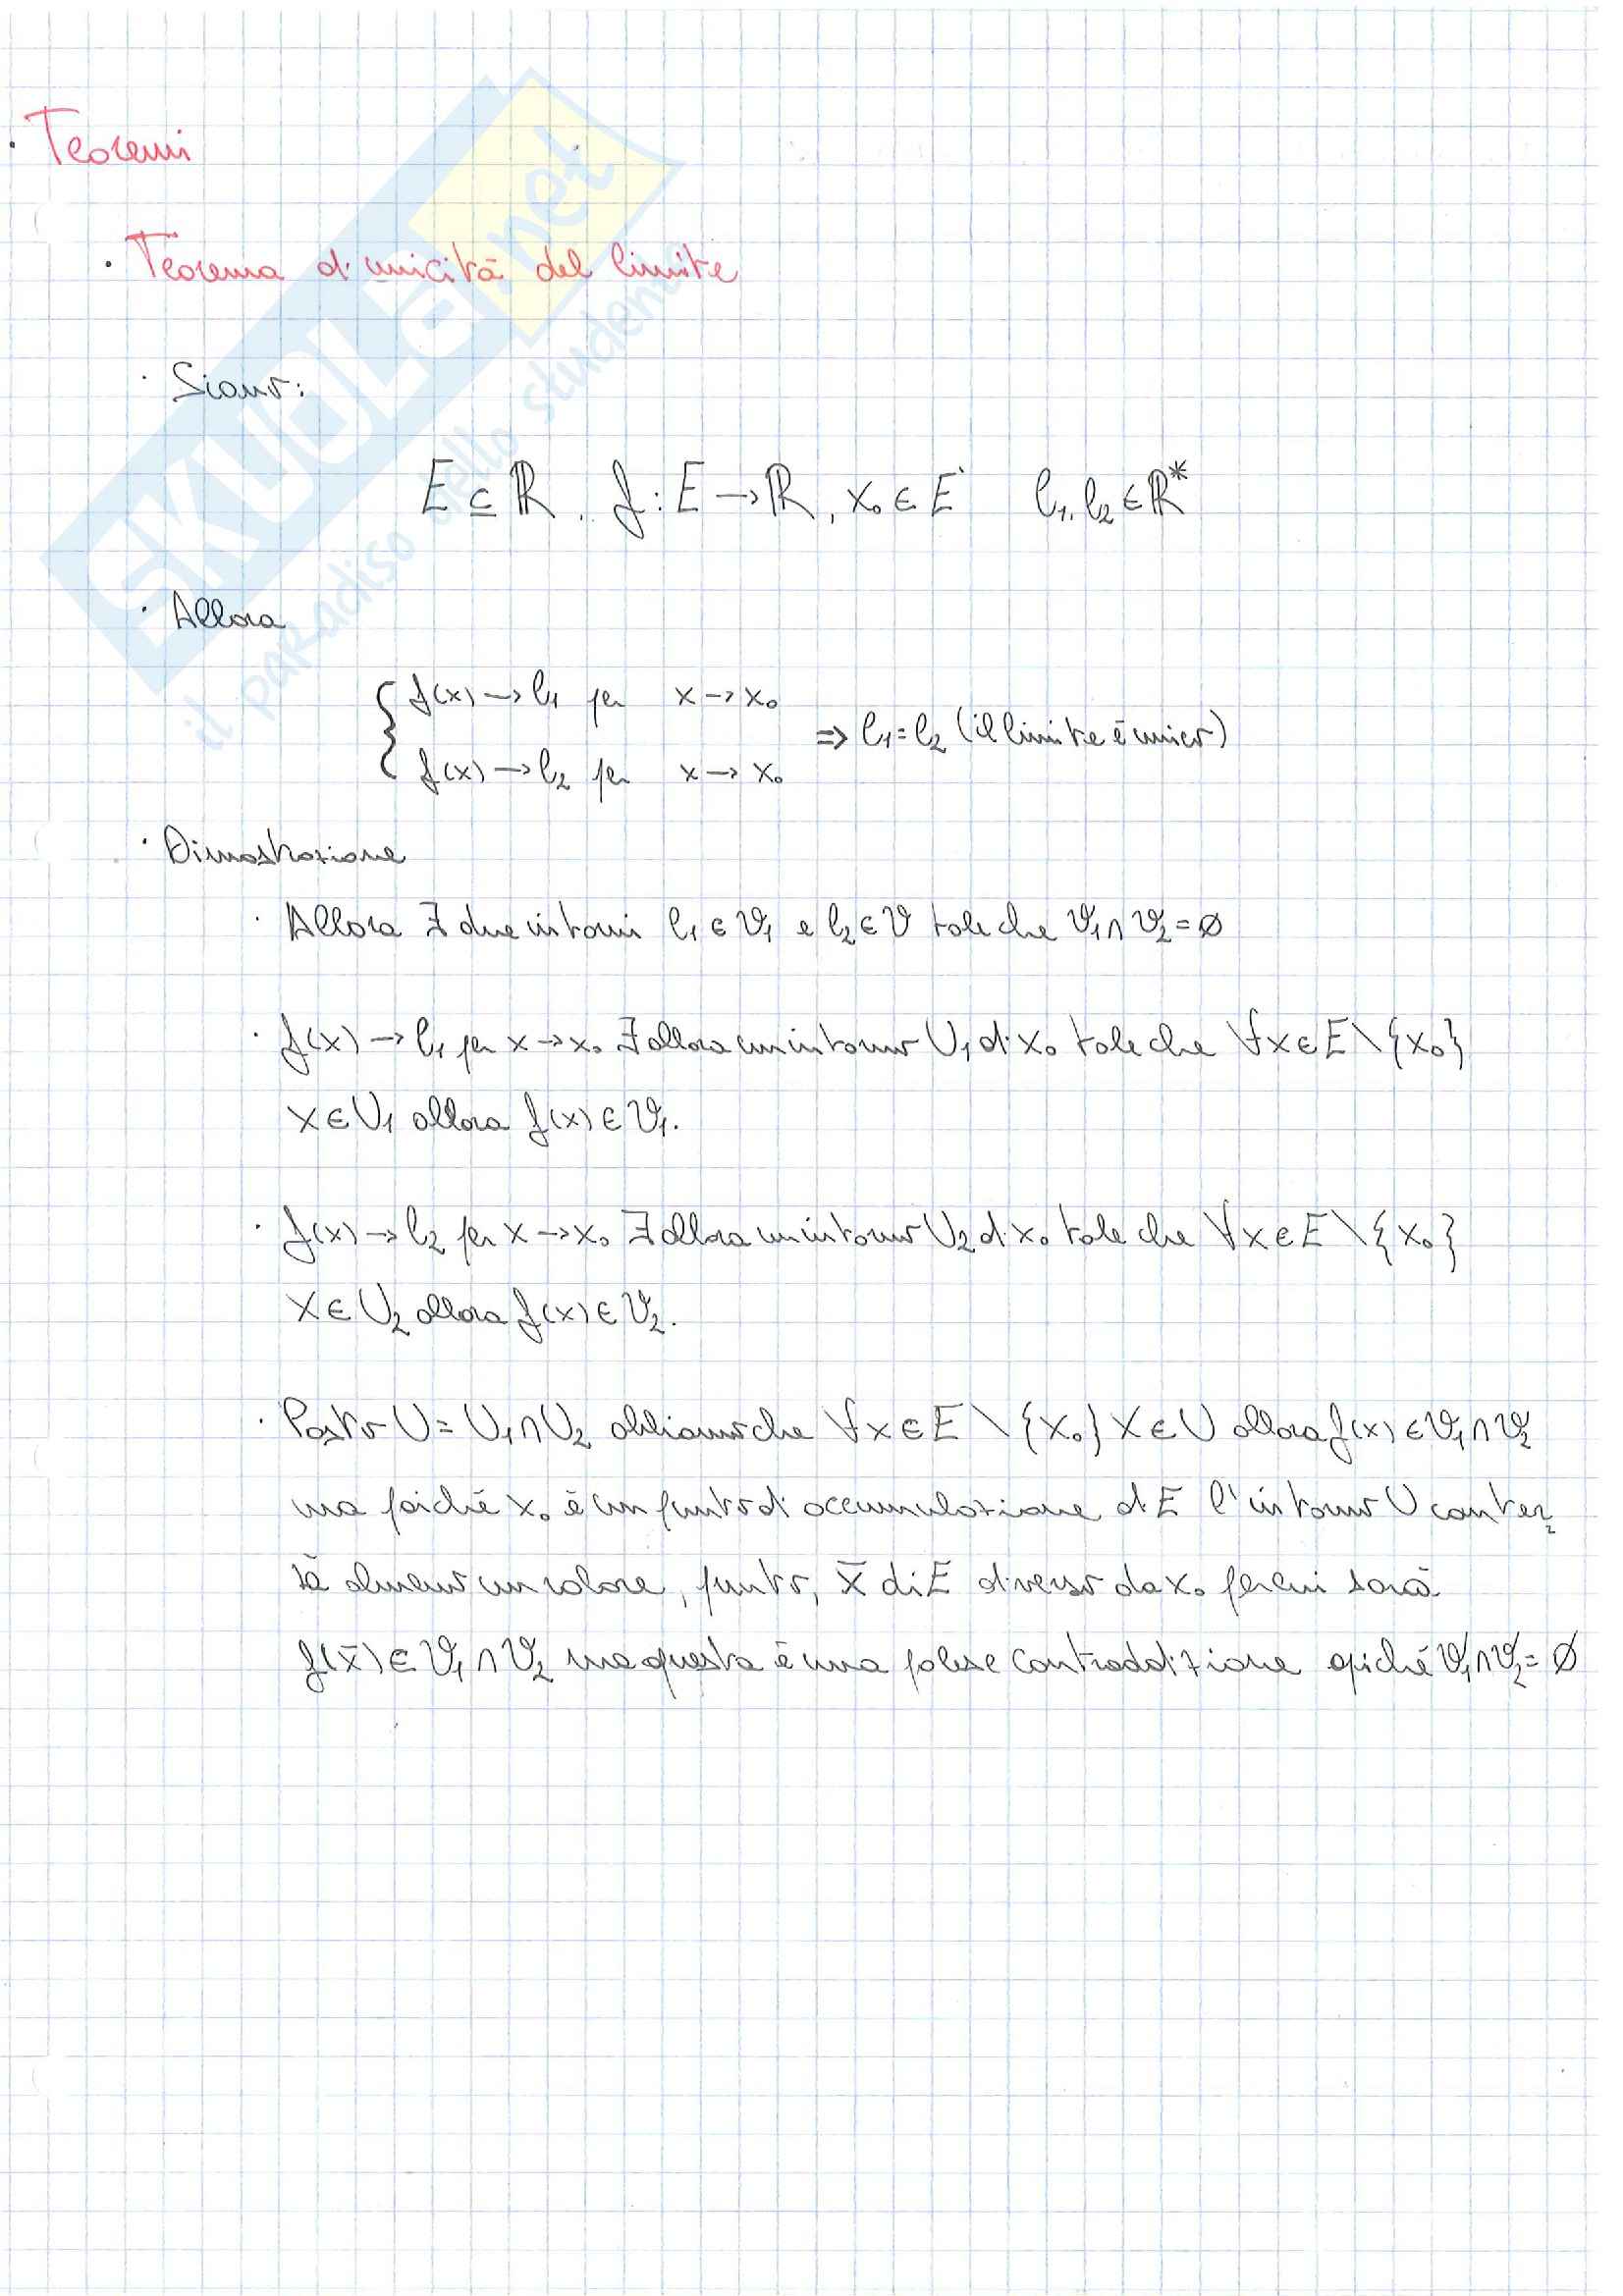 · Teoremi
· Teorema di unicità del limite
· Siano:
E ⊆ ℝ, f: E → ℝ, x₀ ∈ E' l₁, l₂ ∈ ℝ*
· Allora
{ f(x) → l₁ per x → x₀
⇒ l₁ = l₂ (il limite è unico)
f(x) → l₂ per x → x₀
· Dimostrazione
· Allora ∃ due intorni l₁ ∈ V₁ e l₂ ∈ V tale che V₁ ∩ V₂ = ∅
· f(x) → l₁ per x → x₀ ∃ allora un intorno U₁ di x₀ tale che ∀x ∈ E \ {x₀}
x ∈ U₁ allora f(x) ∈ V₁.
· f(x) → l₂ per x → x₀ ∃ allora un intorno U₂ di x₀ tale che ∀x ∈ E \ {x₀}
x ∈ U₂ allora f(x) ∈ V₂.
· Posto U = U₁ ∩ U₂ abbiamo che ∀x ∈ E \ {x₀} x ∈ U allora f(x) ∈ V₁ ∩ V₂
ma poiché x₀ è un punto di accumulazione di E l'intorno U conter
rà almeno un valore, punto, x̄ di E diverso da x₀ per cui sarà
f(x̄) ∈ V₁ ∩ V₂ ma questa è una palese contraddizione apiché V₁ ∩ V₂ = ∅
SKUOLA.net
il paradiso dello studente